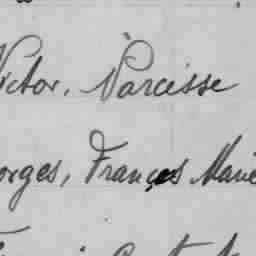 ictor, Narcisse
orges, Françes Marie